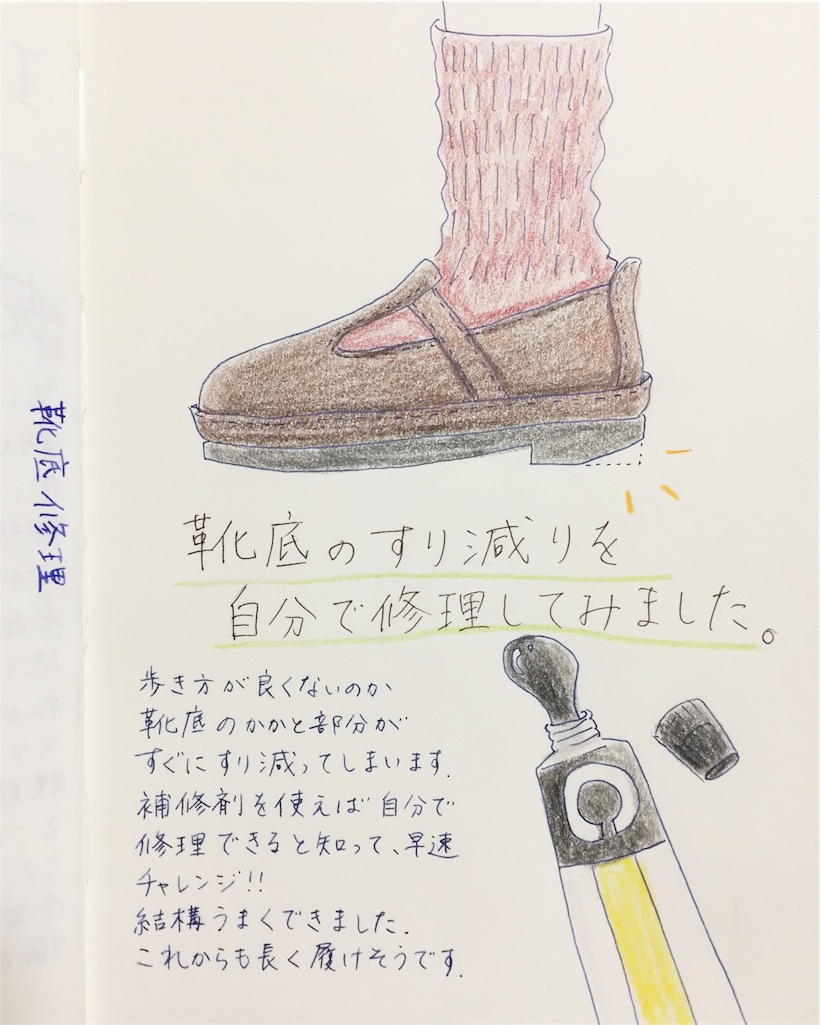 靴底修理
靴底のすり減りを
自分で修理してみました。
歩き方が良くないのか
靴底のかかと部分が
すぐにすり減ってしまいます.
補修剤を使えば自分で
修理できると知って、早速
チャレンジ!!
結構うまくできました.
これからも長く履けそうです.